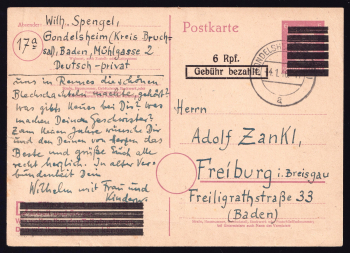 Absender:
Wilh. Spengel,
Gondelsheim/Kreis Bruch-
sal), Baden, Mühlgasse 2
Deutsch-privat
17a
uns in Rennes die schönen
Blechschachteln machte, gehört?
Was gibts Neues bei Dir? Was
machen Deine Geschwister?
Zum Neuen Jahre wünsche Dir
und den Deinen von Herzen das
Beste und grüße Euch alle
recht herzlich. In alter Ver-
bundenheit Dein
Wilhelm mit Frau und
Kindern.
Postkarte
6 Rpf.
Gebühr bezahlt
GONDELSHEIM
a
Herrn
Adolf Zankl,
Freiburg i. Breisgau
Freiligrathstraße 33
(Baden)